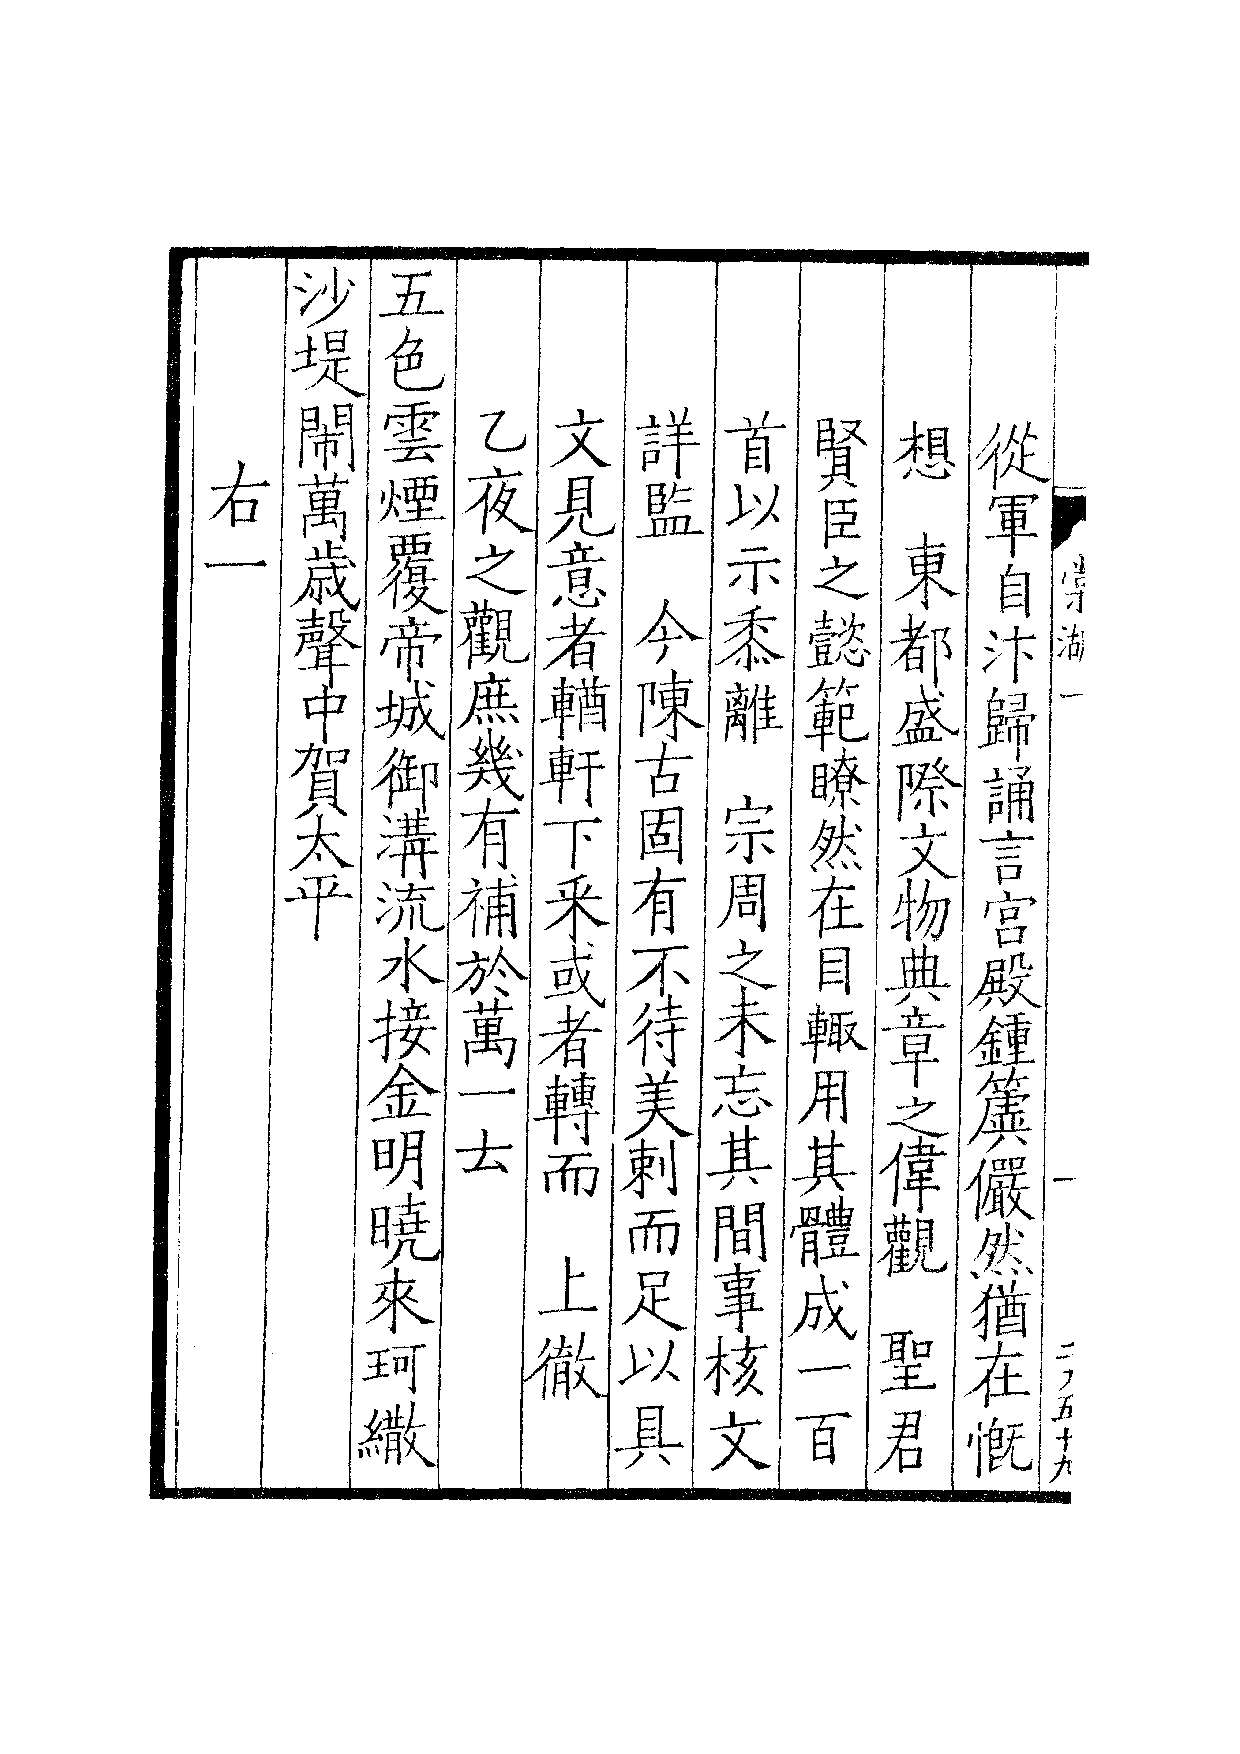 棠湖一
一
從軍自汴歸誦言宮殿鍾簴儼然猶在慨
想　東都盛際文物典章之偉觀　聖君
賢臣之懿範瞭然在目輙用其體成一百
首以示黍離　宗周之未忘其間事核文
詳監　今陳古固有不待美刺而足以具
文見意者輶軒下采或者轉而　上徹
乙夜之觀庶幾有補於萬一云
五色雲煙覆帝城御溝流水接金明曉來珂繖
沙堤閙萬歲聲中賀太平
右一